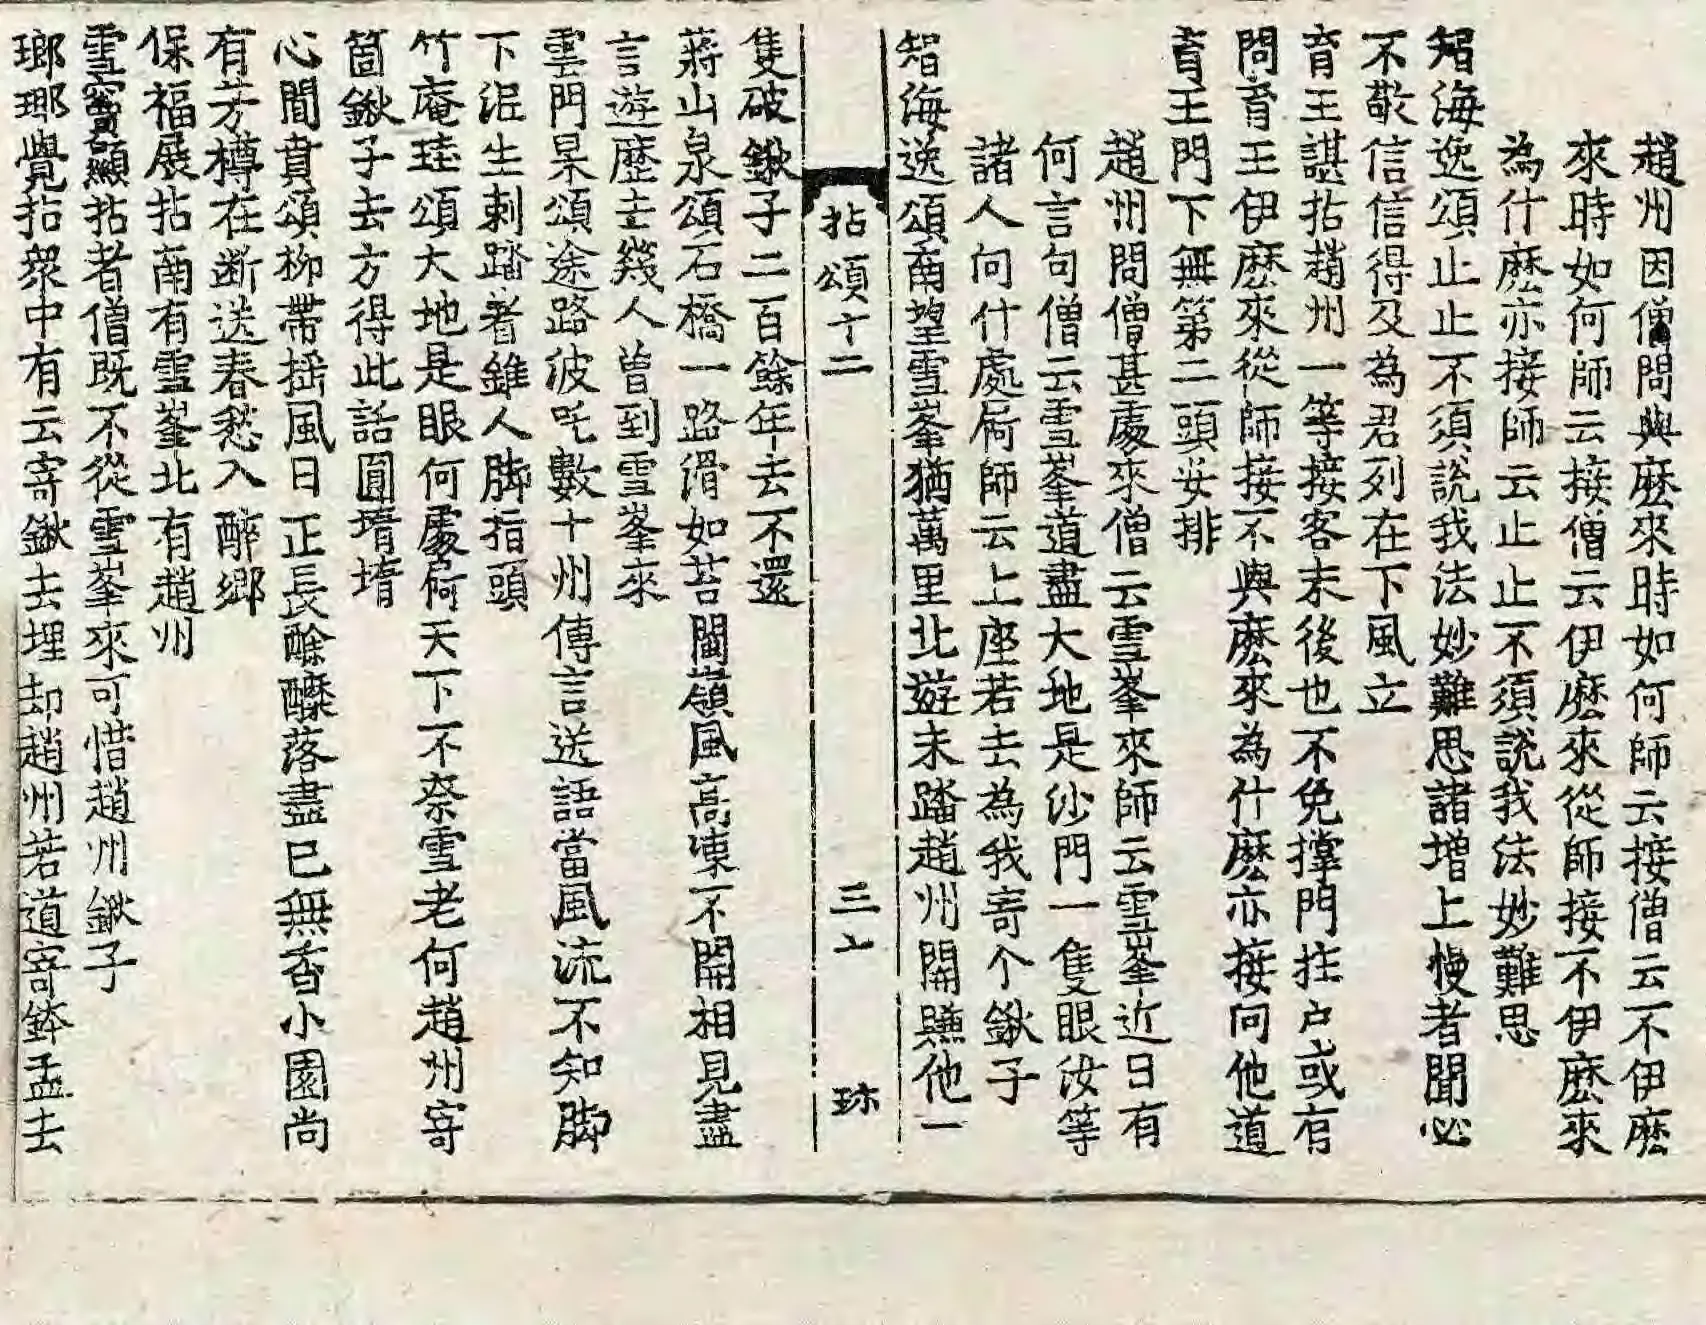 趙州因僧問與麽來時如何師云接僧云不伊麽
來時如何師云接僧云伊麽來從師接不伊麽來
為什麽亦接師云止止不須說我法妙難思
智海逸頌止止不須說我法妙難思諸增上慢者聞必
不敬信信得及為君列在下風立
育王諶拈趙州一等接客末後也不免撑門拄户或有
問育王伊麽來從師接不與麽來為什麽亦接向他道
育王門下無第二頭安排
趙州問僧甚處來僧云雪峯來師云雪峯近日有
何言句僧云雪峯道盡大地是沙門一隻眼汝等
諸人向什處屙師云上座若去為我寄个鍬子
智海逸頌南望雪峯猶萬里北遊未踏趙州關賺他一
拈頌十二 三上 珎
隻破鍬子二百餘年去不還
蔣山泉頌石橋一路滑如苔閩嶺風高凍不開相見盡
言遊歷去幾人曾到雪峯來
雲門杲頌途路波吒數十州傳言送語當風流不知脚
下泥生刺踏着錐人脚指頭
竹庵珪頌大地是眼何處屙天下不柰雪老何趙州寄
箇鍬子去方得此話圓㙐㙐
心聞賁頌柳帶搖風日正長酴醾落盡已無香小園尚
有芳樽在斷送春愁入醉鄉
保福展拈南有雪峯北有趙州
雪竇顯拈者僧既不從雪峯來可惜趙州鍬子
瑯琊覺拈衆中有云寄鍬去埋却趙州若道寄鉢盂去